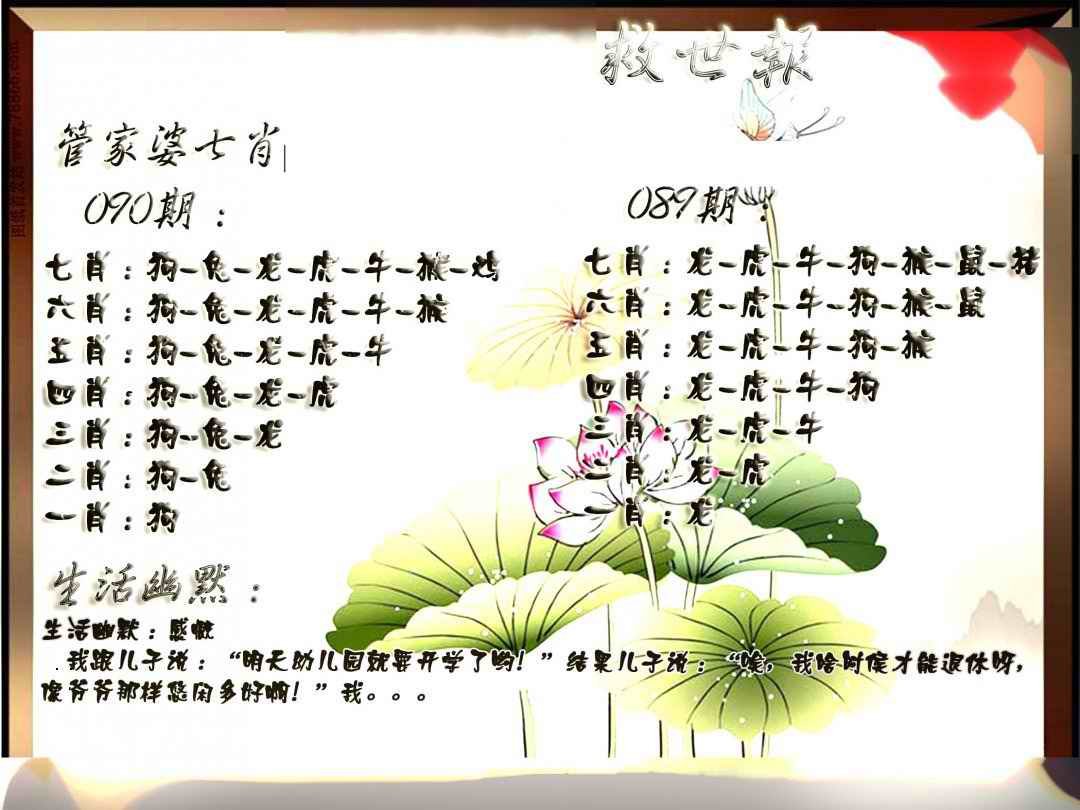 救世報
管家婆七肖
090期：
七肖：狗-兔-龙-虎-牛-猴-鸡
六肖：狗-兔-龙-虎-牛-猴
五肖：狗-兔-龙-虎-牛
四肖：狗-兔-龙-虎
三肖：狗-兔-龙
二肖：狗-兔
一肖：狗
089期：
七肖：龙-虎-牛-狗-猴-鼠-猪
六肖：龙-虎-牛-狗-猴-鼠
五肖：龙-虎-牛-狗-猴
四肖：龙-虎-牛-狗
三肖：龙-虎-牛
二肖：龙-虎
一肖：龙
生活幽默：
生活幽默：感慨
．我跟儿子说：“明天幼儿园就要开学了哟！”结果儿子说：“唉，我啥时候才能退休呀，
像爷爷那样悠闲多好啊！”我。。。